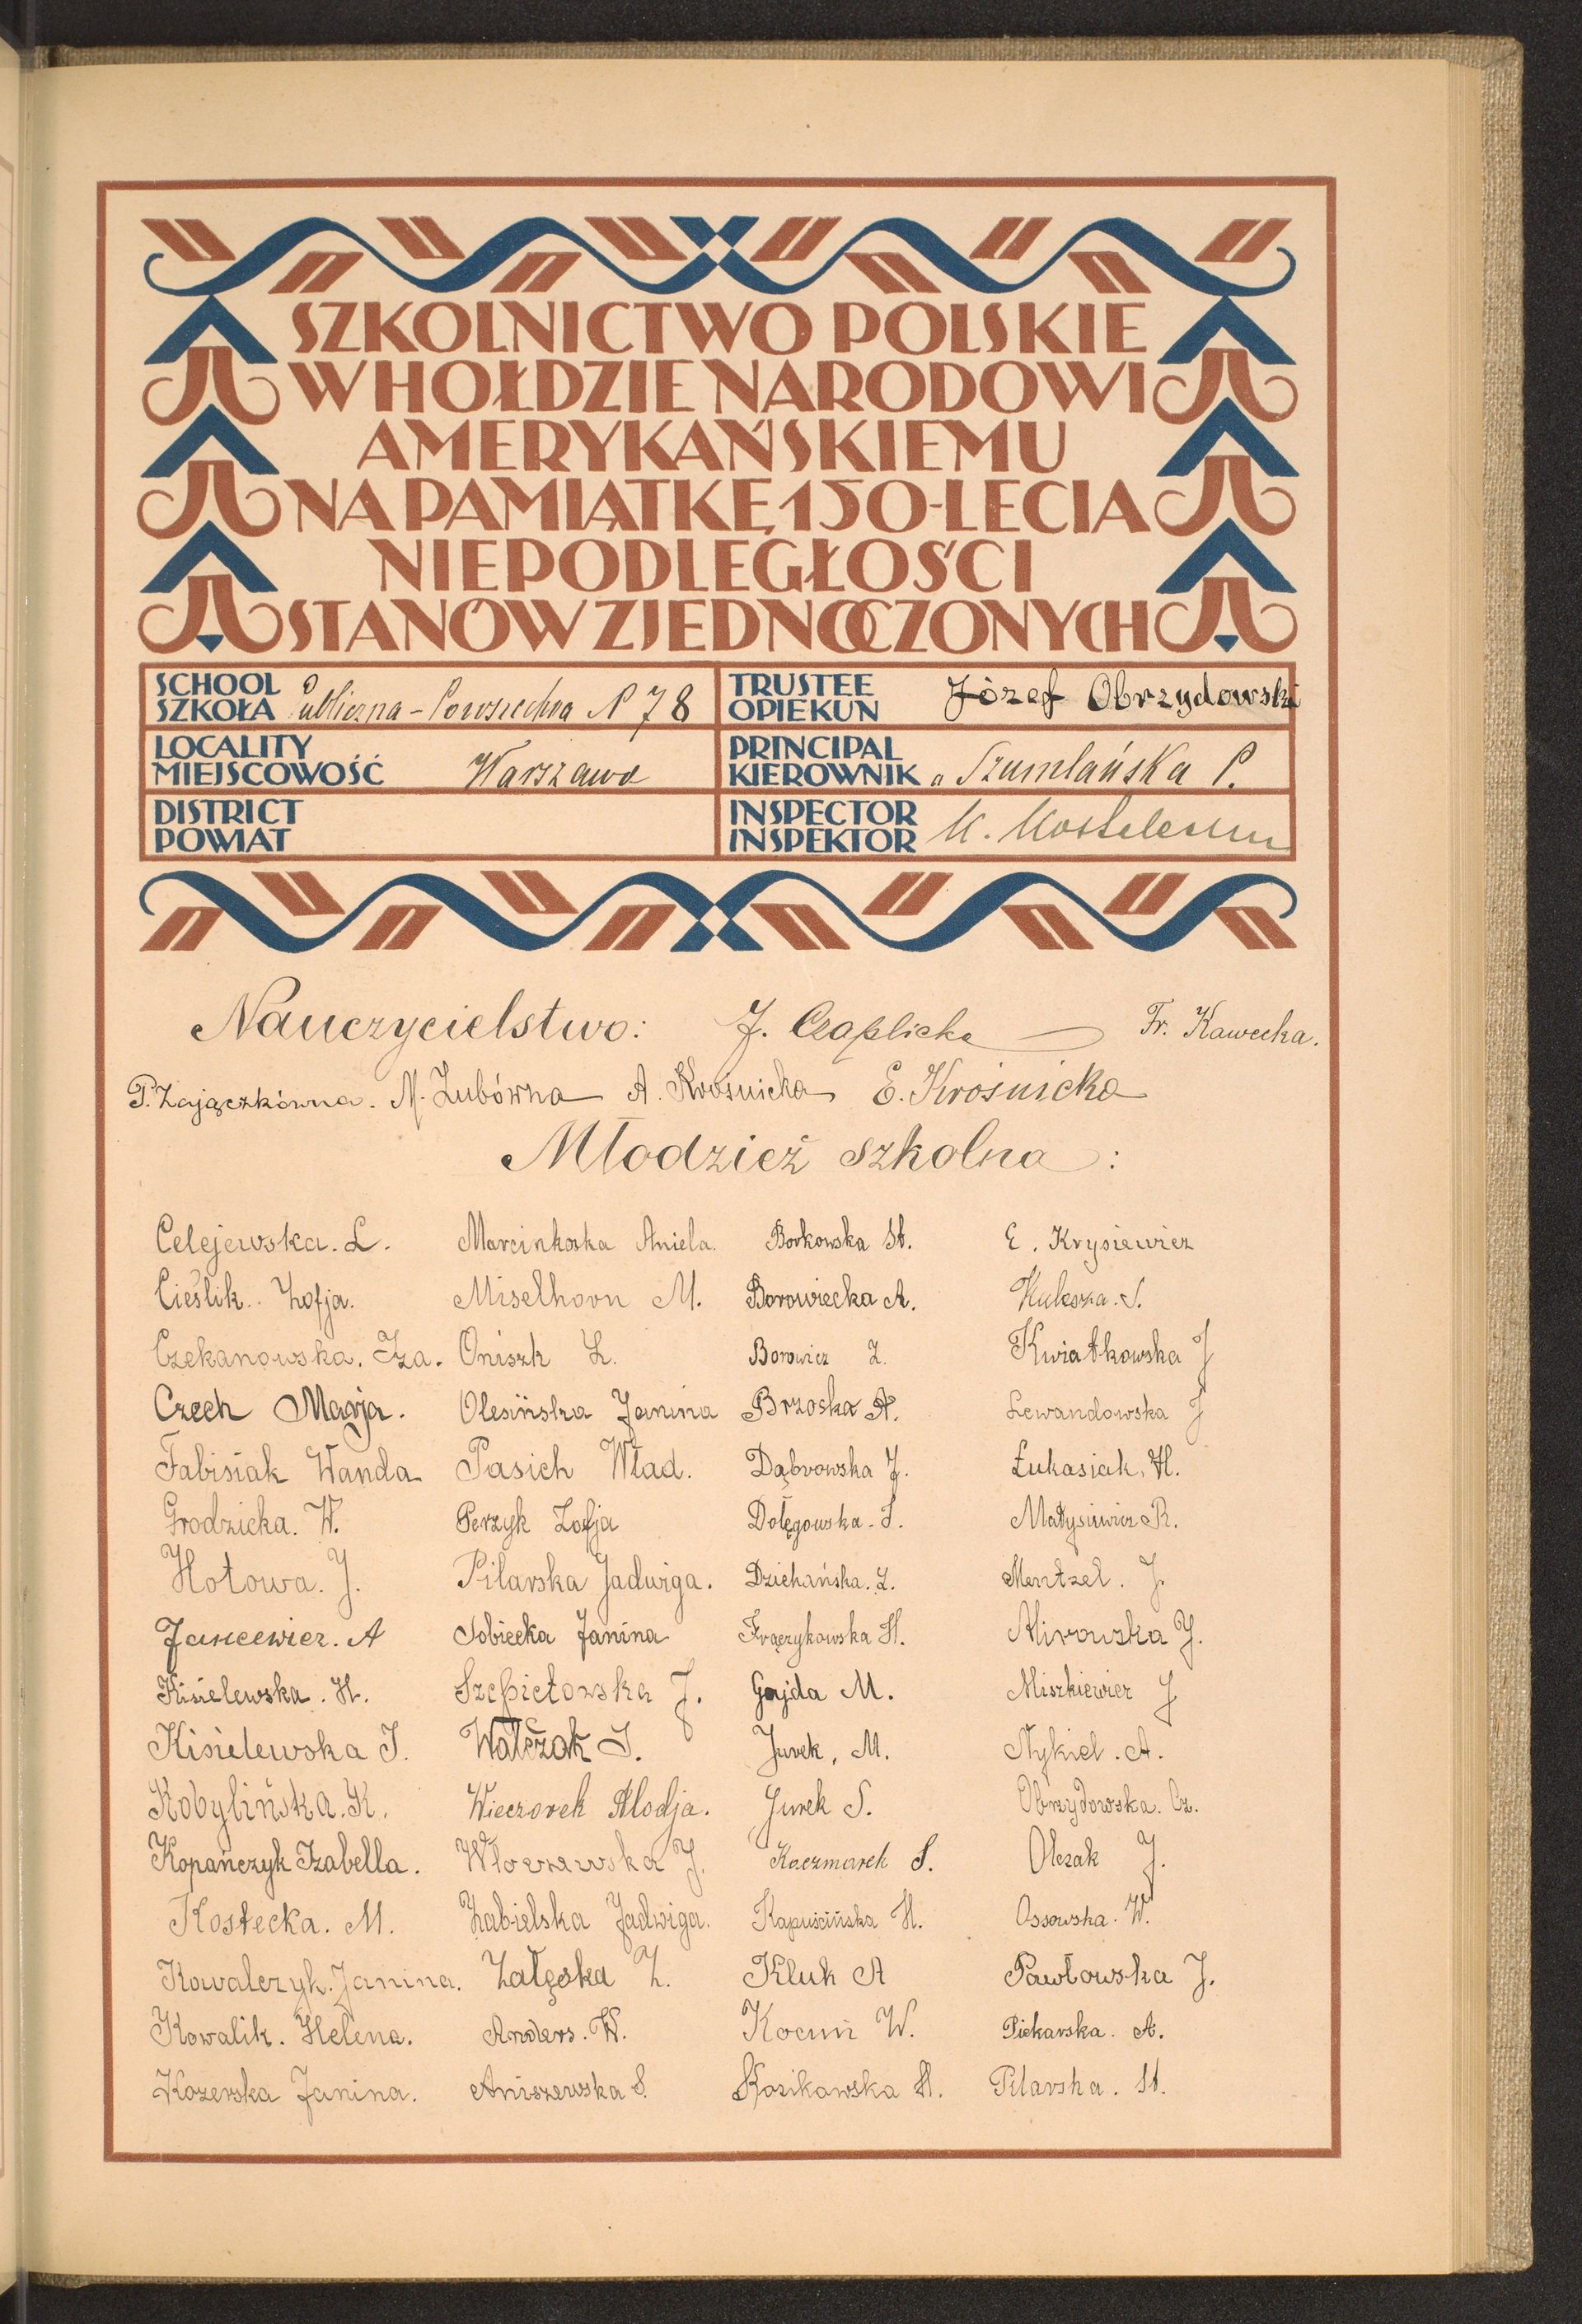 SZKOLNICTWO POLSKIE
W HOŁDZIE NARODOWI
AMERYKAŃSKIEMU
NA PAMIĄTKĘ 150-LECIA
NIEPODLEGŁOŚCI
STANÓW ZJEDNOCZONYCH
SCHOOL
SZKOŁA Publiczna - Powszechna N 78
TRUSTEE
OPIEKUN Józef Obrzydowski
LOCALITY
MIEJSCOWOŚĆ Warszawa
PRINCIPAL
KIEROWNIK Szumlańska P.
DISTRICT
POWIAT
INSPECTOR
INSPEKTOR
Nauczycielstwo: J. Czaplicka Fr. Kawecka.
P. Zajączkówna. M. Zubówna A. Krośnicka E. Krośnicka
Młodzież szkolna:
Celejewska. L. Marcinkoska Aniela. Borkowska St. E. Krysiewicz
Cieślik. Zofja. Miselhorn M. Borowiecka A. Kulesza. S.
Czekanowska. Iza. Oniszk Z. Borowicz Z. Kwiatkowska J
Czech Marja. Olesińska Janina Brzoska A. Lewandowska J
Fabisiak Wanda Pasich Wład. Dąbrowska J. Łukasiak, H.
Grodzicka. W. Perzyk Zofja Dołęgowska. S. Matysiewicz R.
Hotowa. J. Pilarska Jadwiga. Dziehańska. Z. Mentzel. J.
Jancewicz. A Sobiecka Janina Frączykowska H. Mirowska J.
Kisielewska. H. Szepietowska J. Gajda M. Miszkiewicz J
Kisielewska J. Walczak S. Jurek, M. Nykiel. A.
Kobylińska. K. Wieczorek Alodja. Jurek S. Obrzydowska. Cz.
Kopańczyk Izabella. Włoczewska J. Kaczmarek S. Olczak J.
Kostecka. M. Zabielska Jadwiga. Kapuścińska H. Ossowska. W.
Kowalczyk. Janina. Załęska Z. Kluk A Pawłowska J.
Kowalik. Helena. Anders. W. Kocuń W. Piekarska. A.
Kozerska Janina. Aniszewska S. Kosikowska H. Pilarska. St.